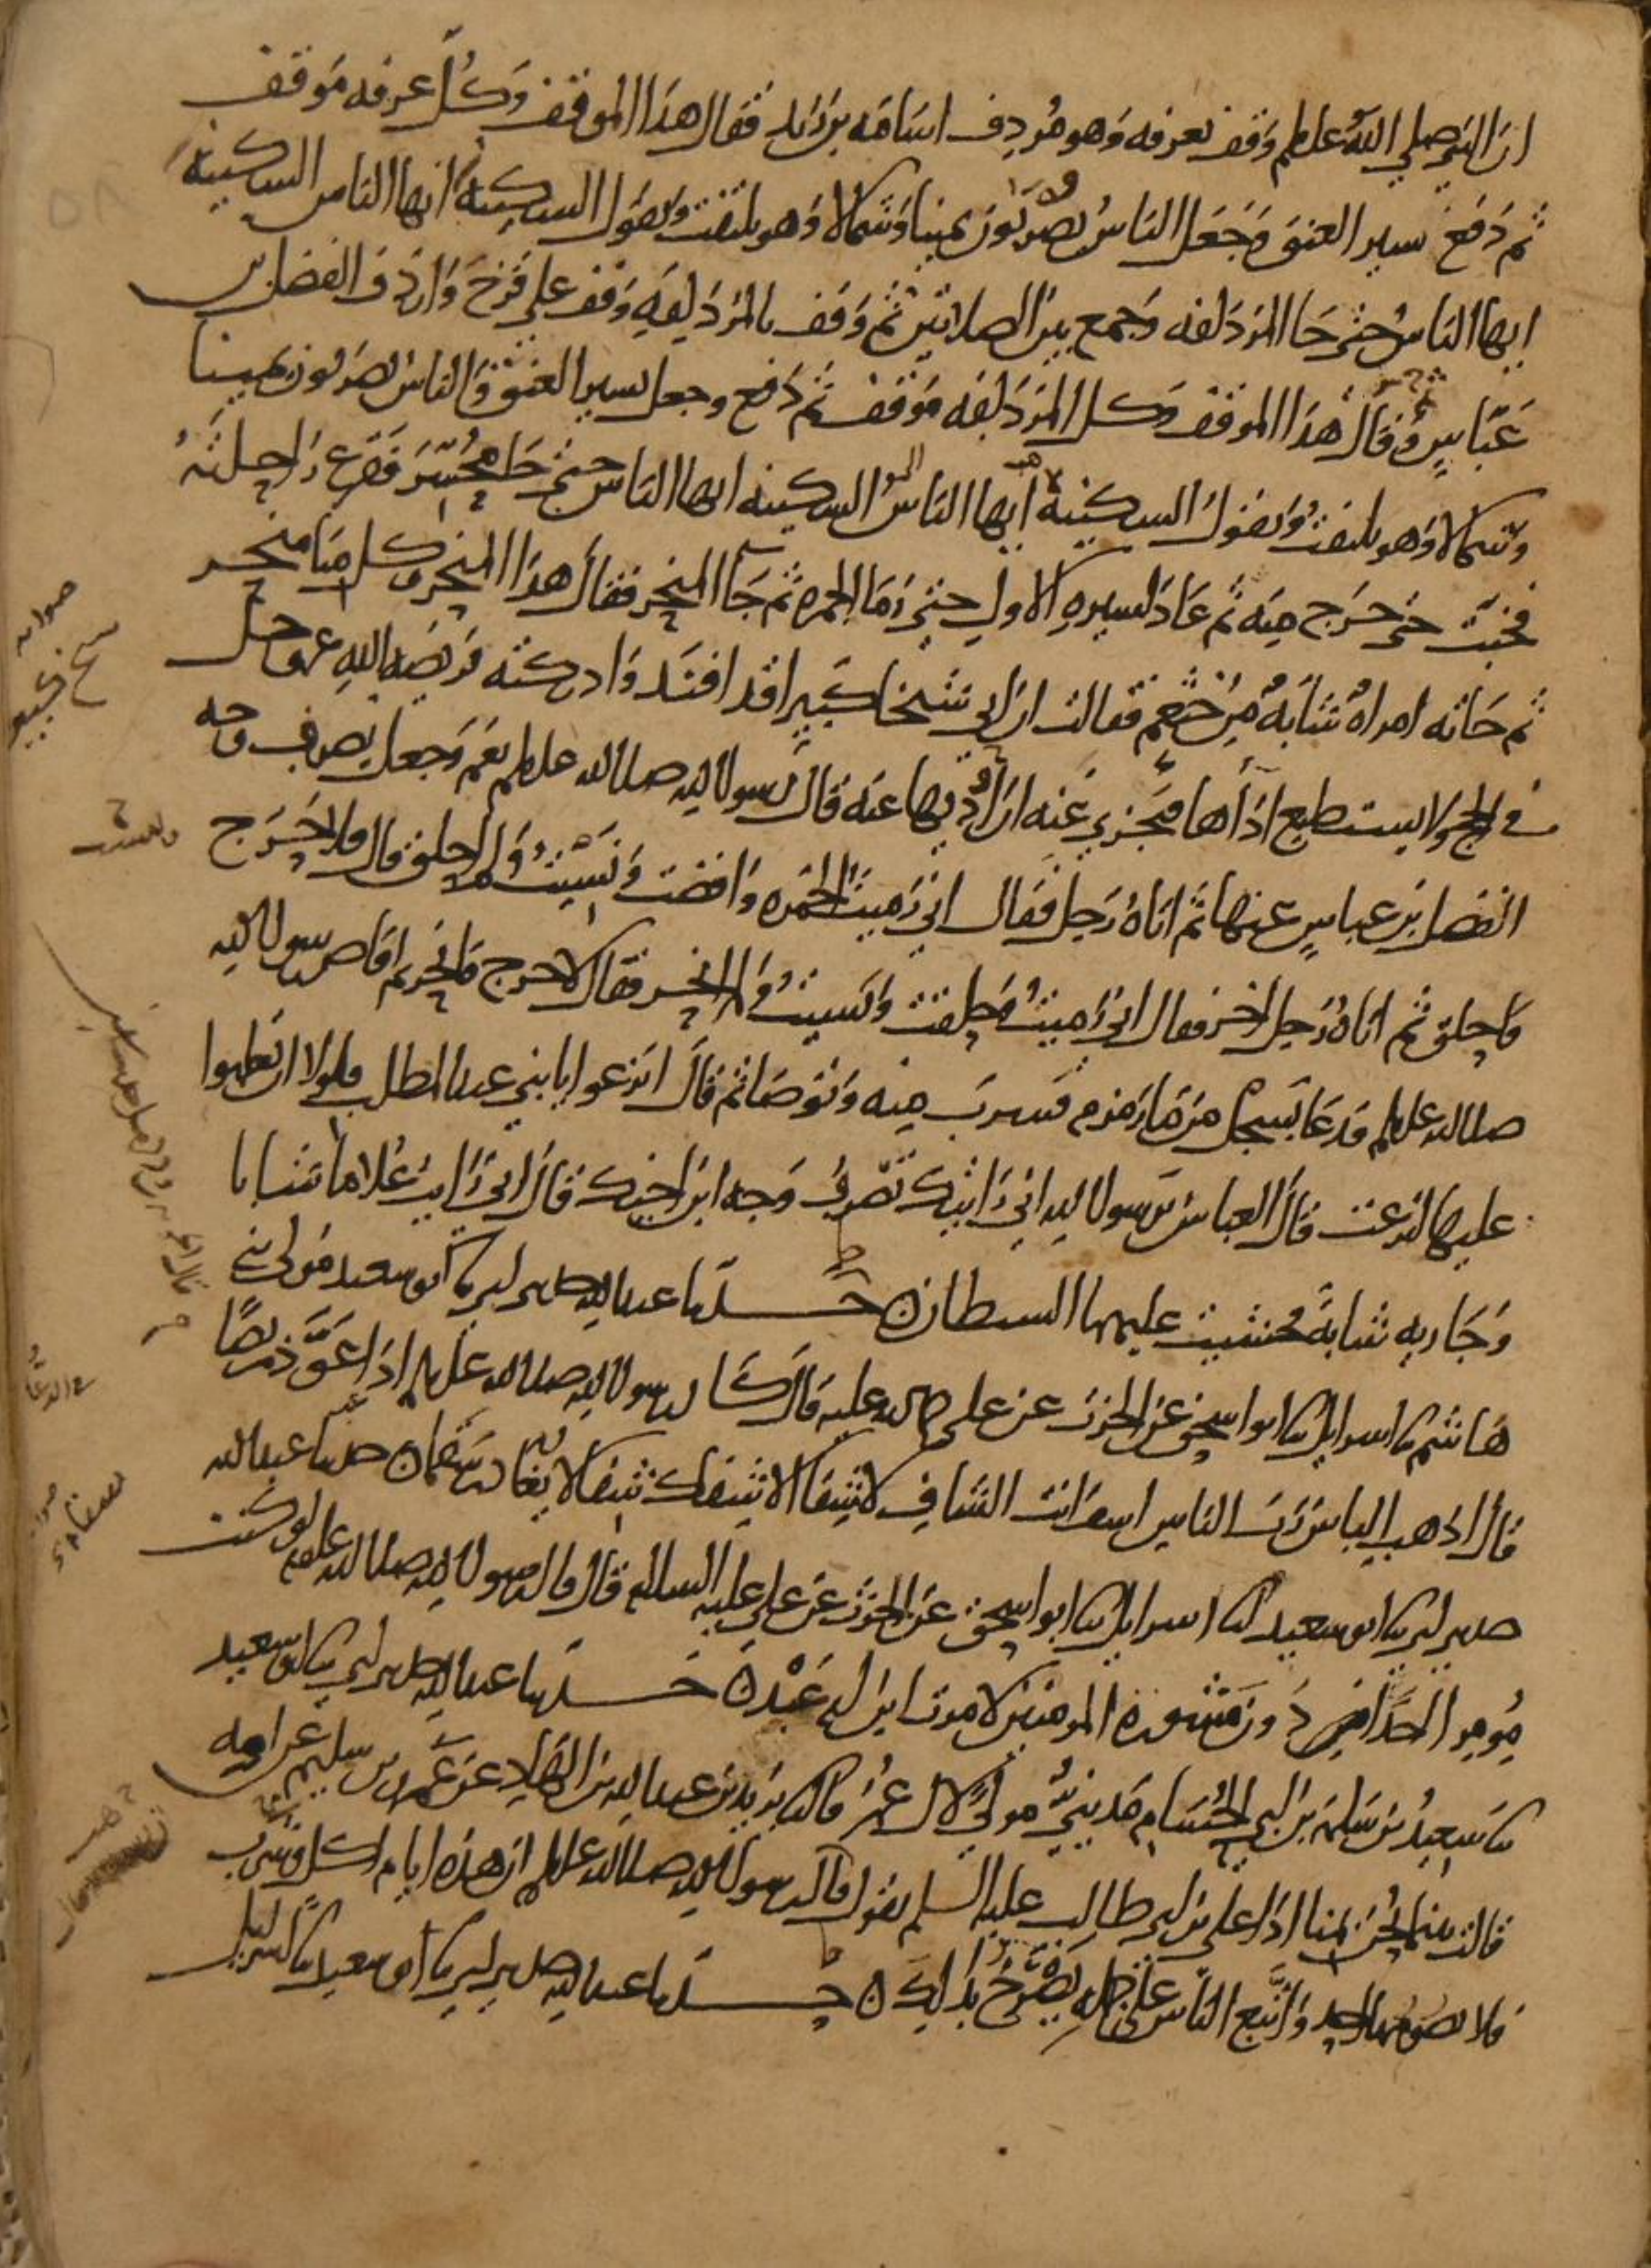 ان النبي صلي الله علىلم وقف بعرفه وهو مردف اسامه بن زيد فقال هذا الموقف وكل عرفه موقف
ثم دفع يسير العنق وجعل الناس يضربون يمينا وشمالا وهو يلتفت ويقول السكينة ايها الناس السكينة
ايها الناس حتي جا المزدلفه وجمع بين الصلاتين ثم وقف بالمزدلفه وقف علي قزح واردف الفضل بن
عباس وقال هذا الموقف وكل المزدلفه موقف ثم دفع وجعل يسير العنق والناس يضربون يمينا
وشمالا وهو يلتفت ويقول السكينة ايها الناس السكينه ايها الناس حتي جا محسر فقرع راحلته
فخبت حتى خرج منه ثم عاد لسيره الاول حتي رما الجمره ثم جا المنحر فقال هذا المنحر وكل منا منحر
ثم جاته امراة شابة من خثعم فقالت ان ابي شيخ كبير قد افند وادركته فريضه الله عز وجل
في الحج ولا يستطيع اداها فيجزي عنه ان اوديها عنه قال رسول الله صلى الله علىلم نعم وجعل يصرف وجه
الفضل بن عباس عنها ثم اتاه رجل فقال اني رميت الجمره وافضت ونسيت ولم احلق قال فلا حرج
فاحلق ثم اتاه رجل اخر فقال اني رميت وحلقت ونسيت ولم انحر فقال لا حرج فانحر ثم افاض رسول الله
صلى الله علىلم فدعا بسجل من ما زمزم فشرب منه وتوضا ثم قال انزعوا يا بني عبد المطلب فلولا ان تغلبوا
عليها لنزعت قال العباس يرسول الله اني رايتك تصرف وجه ابن اخيك قال اني رايت غلاما شابا
وجاريه شابة فخشيت عليهما الشيطان حدثنا عبد الله حدثني ابي نا ابو سعيد مولى بني
هاشم نا اسرايل نا ابو اسحق عن الحرث عن علي قال كان رسول الله صلى الله علىلم اذا عوذ مريضا
قال اذهب الباس رب الناس اشف انت الشافي لا شفا الا شفاك شفا لا يغادر سقما حدثنا عبد الله
حدثني ابي نا ابو سعيد نا اسرايل نا ابو اسحق عن الحرث عن علي عليه السلام قال قال رسول الله صلى الله علىلم لو كنت
مومرا احدا دون مشورة المومنين لامرت ابن ام عبد حدثنا عبد الله حدثني ابي نا ابو سعيد
نا سعيد بن سلمة بن ابي الحسام مديني مولي لال عمر قال نا يزيد بن عبد الله بن الهاد عن عمرو بن سليم عن امه
قالت بينما نحن بمنا اذا علي بن ابي طالب عليه السلم يقول قال رسول الله صلى الله علىلم ان هذه ايام اكل وشرب
فلا يصومها احد واتبع الناس علي جمله يصرخ بذلك حدثنا عبد الله حدثني ابي نا ابو سعيد نا اسرايل
صوابه
شيخ كبير